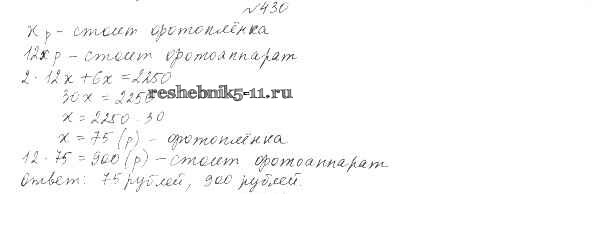 №430
x р – стоит фотоплёнка
12x р – стоит фотоаппарат
2 · 12x + 6x = 2250
30x = 2250
reshebnik5-11.ru
x = 2250 : 30
x = 75 (р) – фотоплёнка
12 · 75 = 900 (р) – стоит фотоаппарат
ответ: 75 рублей, 900 рублей.